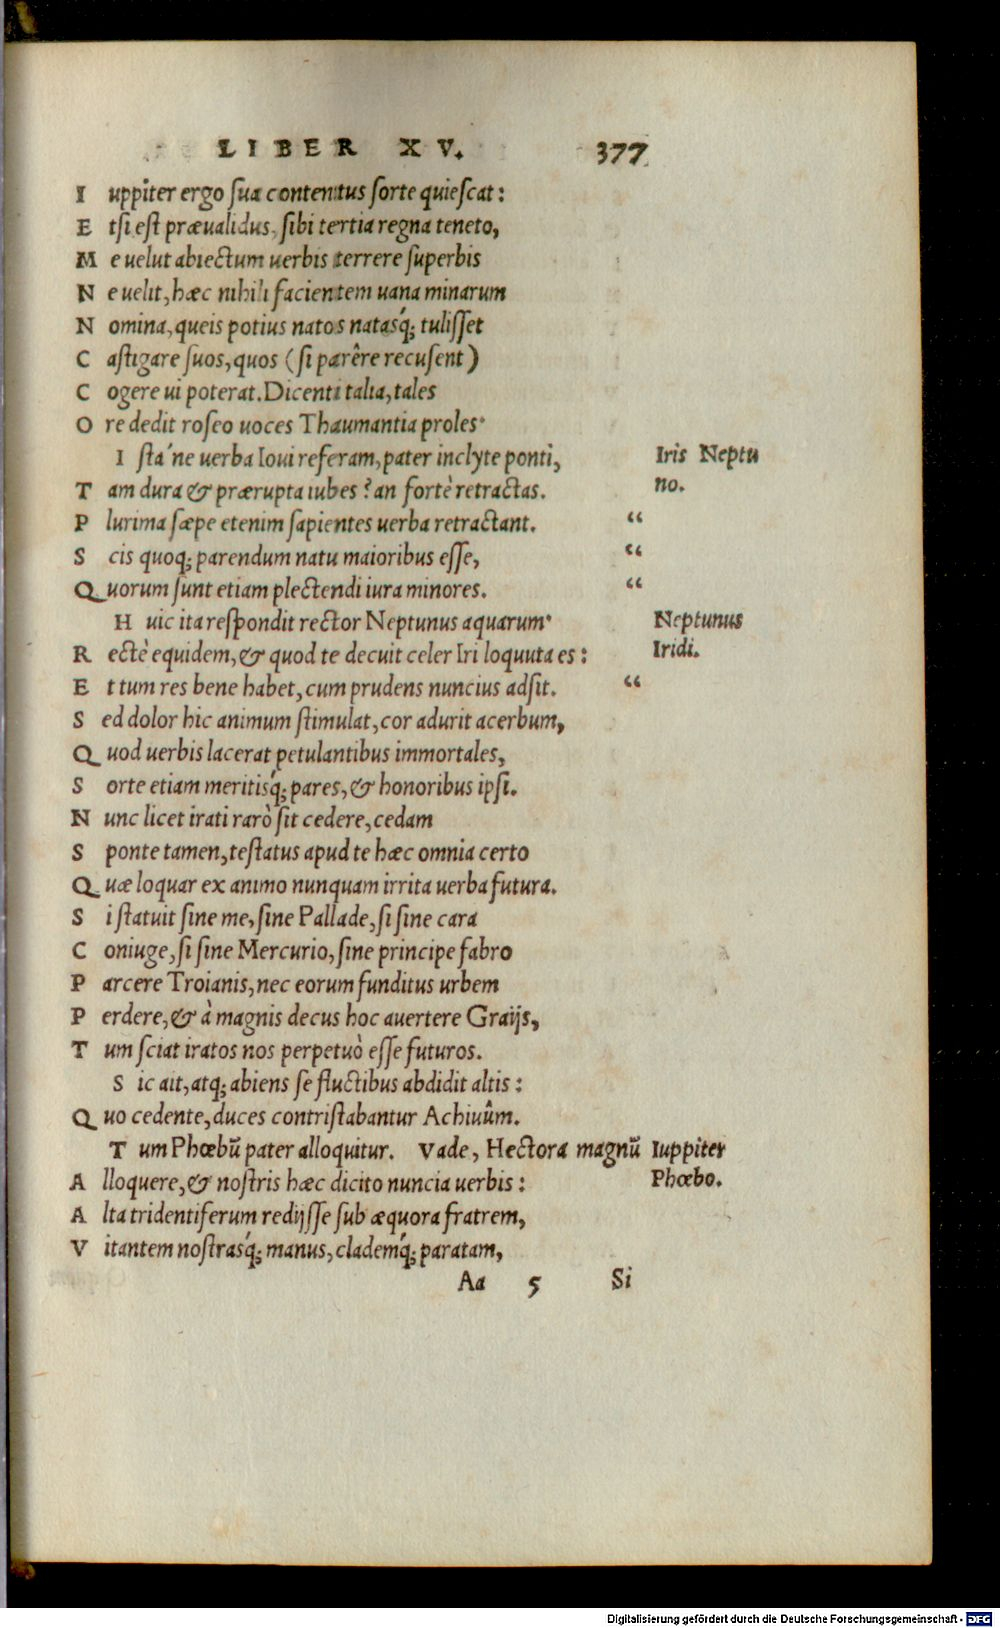 LIBER XV. 377
Iuppiter ergo sua contentus sorte quiescat:
Etsi est præualidus, sibi tertia regna teneto,
Me uelut abiectum uerbis terrere superbis
Ne uelit, hæc nihili facientem uana minarum
Nomina, queis potius natos natasq́; tulisset
Castigare suos, quos (si parêre recusent)
Cogere ui poterat. Dicenti talia, tales
Ore dedit roseo uoces Thaumantia proles·
Ista´ne uerba Ioui referam, pater inclyte ponti, Iris Neptu
Tam dura & prærupta iubes? an fortè retractas. no.
Plurima sæpe etenim sapientes uerba retractant. “
Scis quoq; parendum natu maioribus esse, “
Quorum sunt etiam plectendi iura minores. “
Huic ita respondit rector Neptunus aquarum· Neptunus
Rectè equidem, & quod te decuit celer Iri loquuta es: Iridi.
Et tum res bene habet, cum prudens nuncius adsit. “
Sed dolor hic animum stimulat, cor adurit acerbum,
Quod uerbis lacerat petulantibus immortales,
Sorte etiam meritisq́; pares, & honoribus ipsi.
Nunc licet irati rarò sit cedere, cedam
Sponte tamen, testatus apud te hæc omnia certo
Quæ loquar ex animo nunquam irrita uerba futura.
Si statuit sine me, sine Pallade, si sine cara
Coniuge, si sine Mercurio, sine principe fabro
Parcere Troianis, nec eorum funditus urbem
Perdere, & à magnis decus hoc auertere Graijs,
Tum sciat iratos nos perpetuò esse futuros.
Sic ait, atq; abiens se fluctibus abdidit altis:
Quo cedente, duces contristabantur Achiuûm.
Tum Phœbũ pater alloquitur. Vade, Hectora magnũ Iuppiter
Alloquere, & nostris hæc dicito nuncia uerbis: Phœbo.
Alta tridentiferum redijsse sub æquora fratrem,
Vitantem nostrasq́; manus, clademq́; paratam,
Aa 5 Si
Digitalisierung gefördert durch die Deutsche Forschungsgemeinschaft - DFG